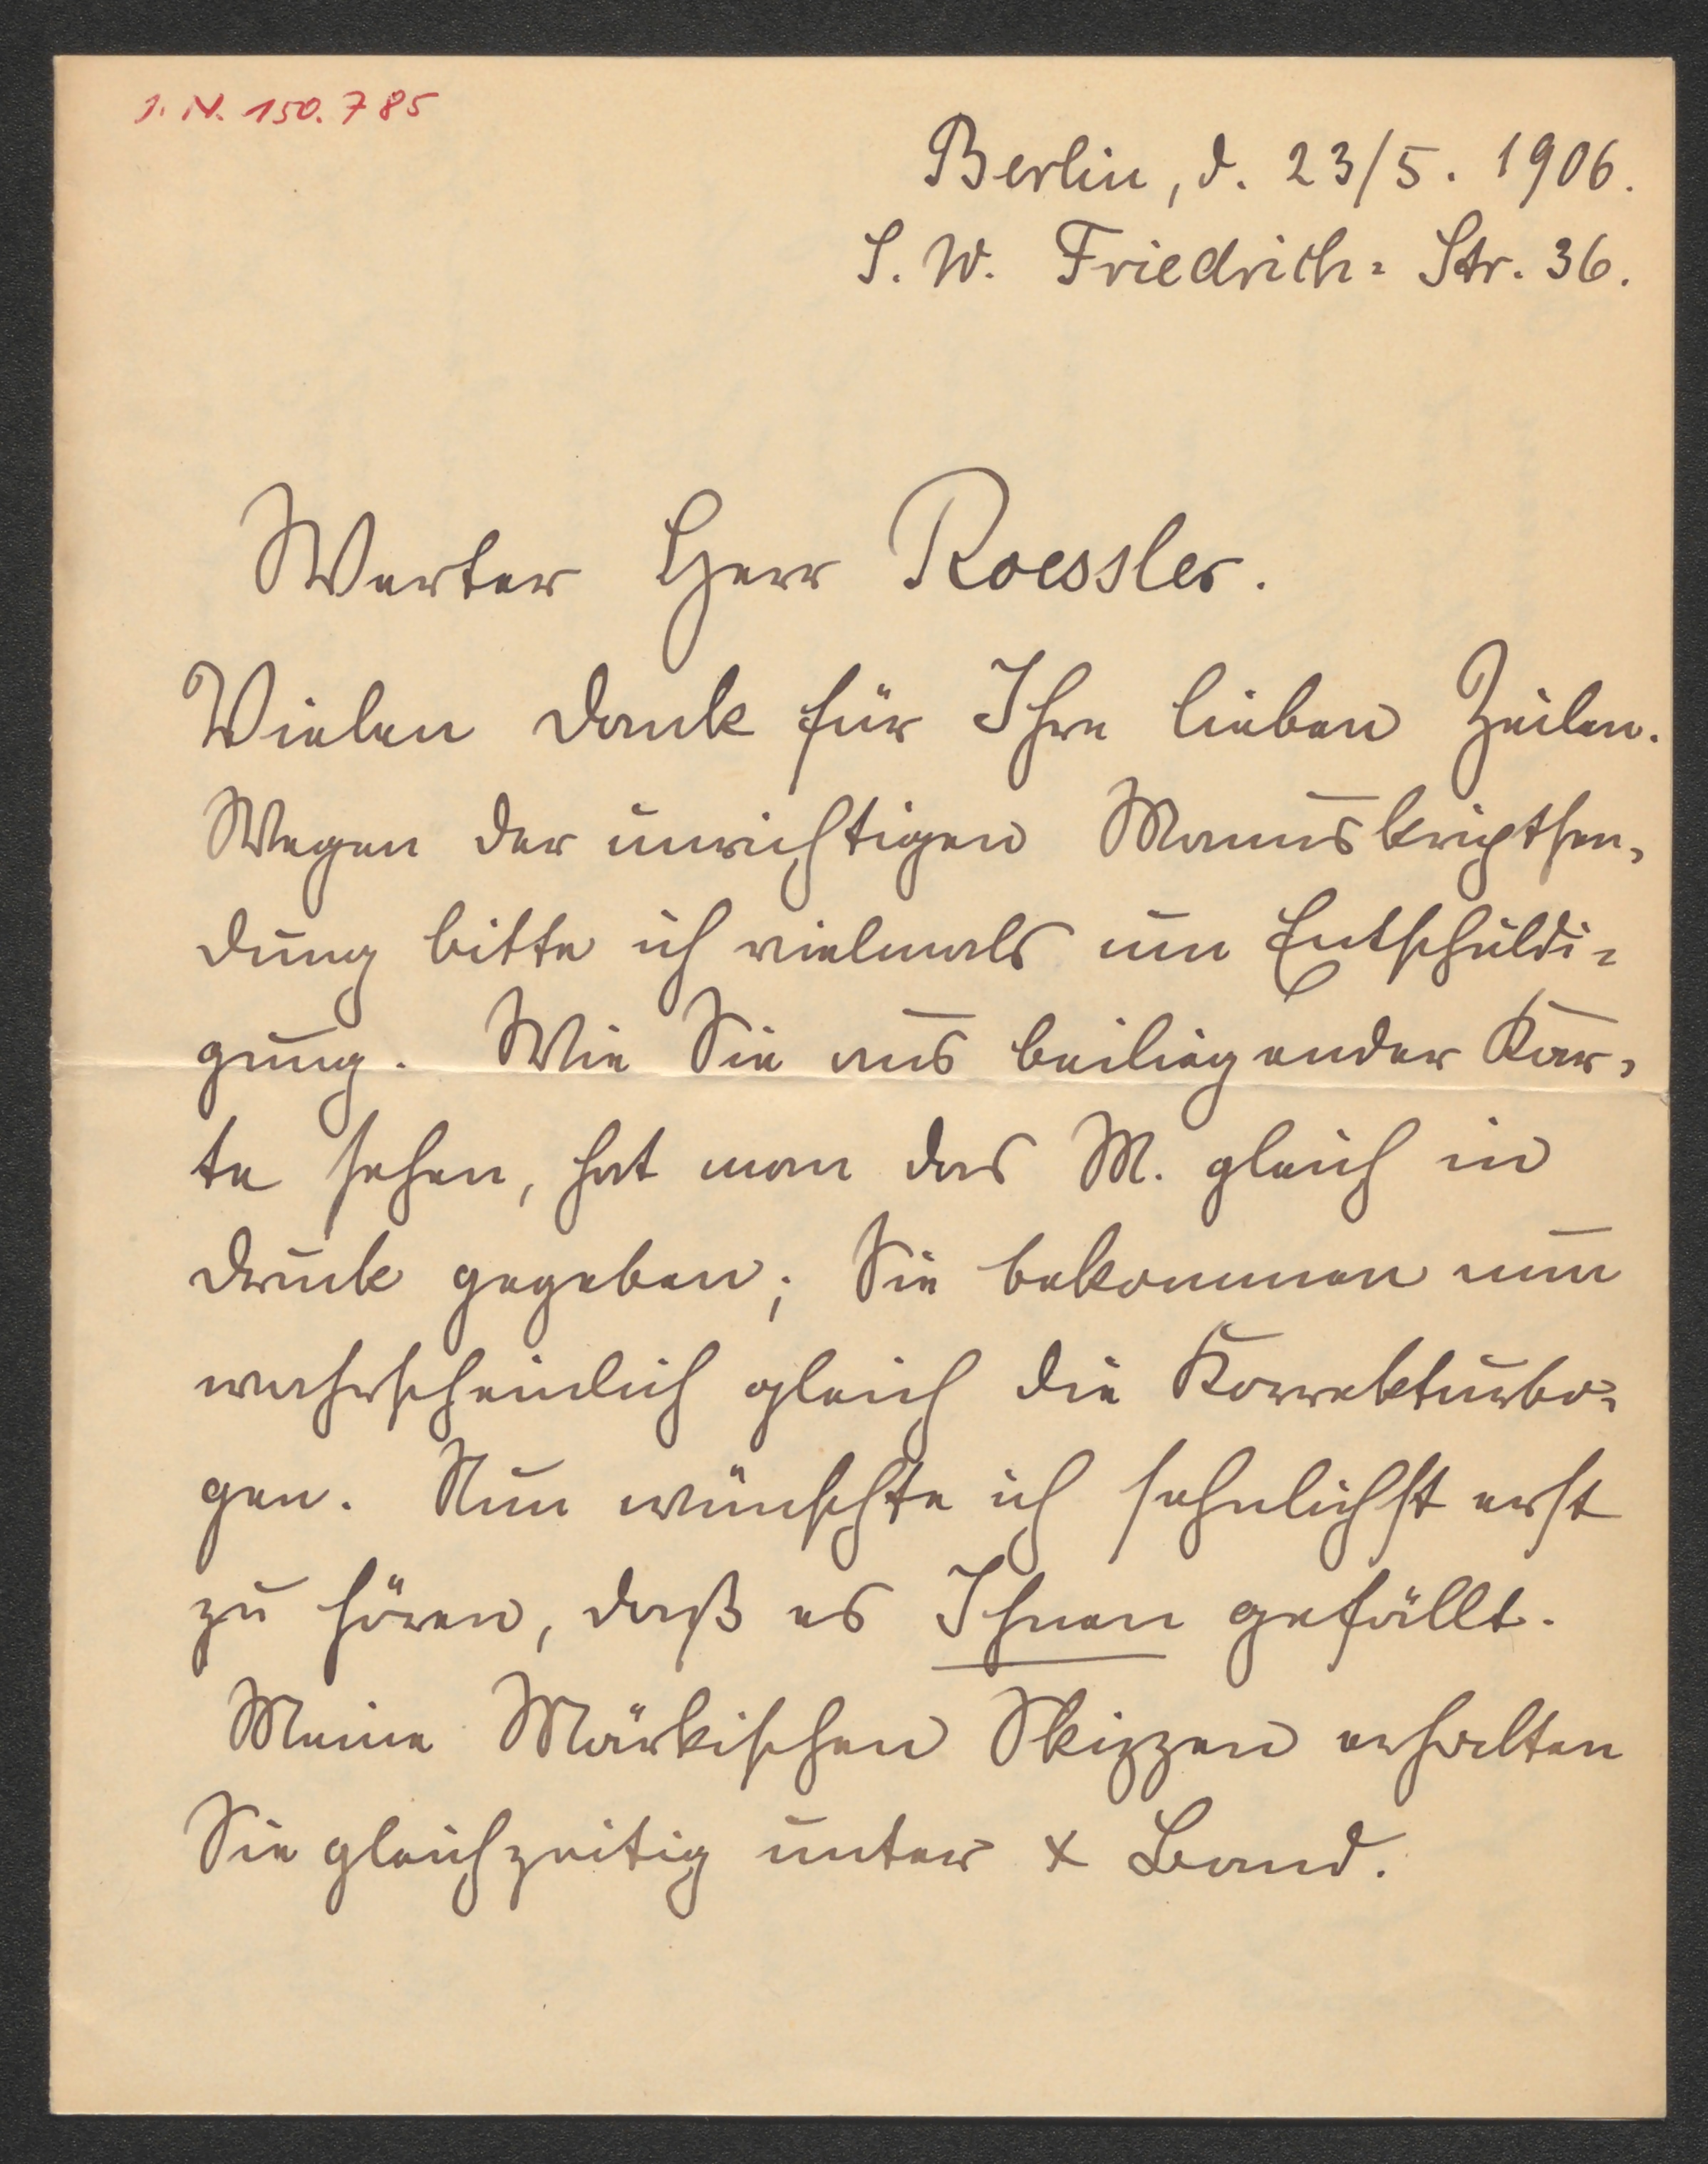 J. N. 150.785
Berlin, d. 23/5. 1906.
S. W. Friedrich= Str. 36.
Werter Herr Roessler.
Vielen Dank für Ihre lieben Zeilen.
Wegen der unrichtigen Manuskriptsen=
dung bitte ich vielmals um Entschuldi=
gung. Wie Sie aus beiliegender Kar=
te sehen, hat man das M. gleich in
Druck gegeben; Sie bekommen nun
wahrscheinlich gleich die Korrekturbo=
gen. Nun wünschte ich sehnlichst erst
zu hören, daß es Ihnen gefällt.
Meine Märkischen Skizzen erhalten
Sie gleichzeitig unter x Band.